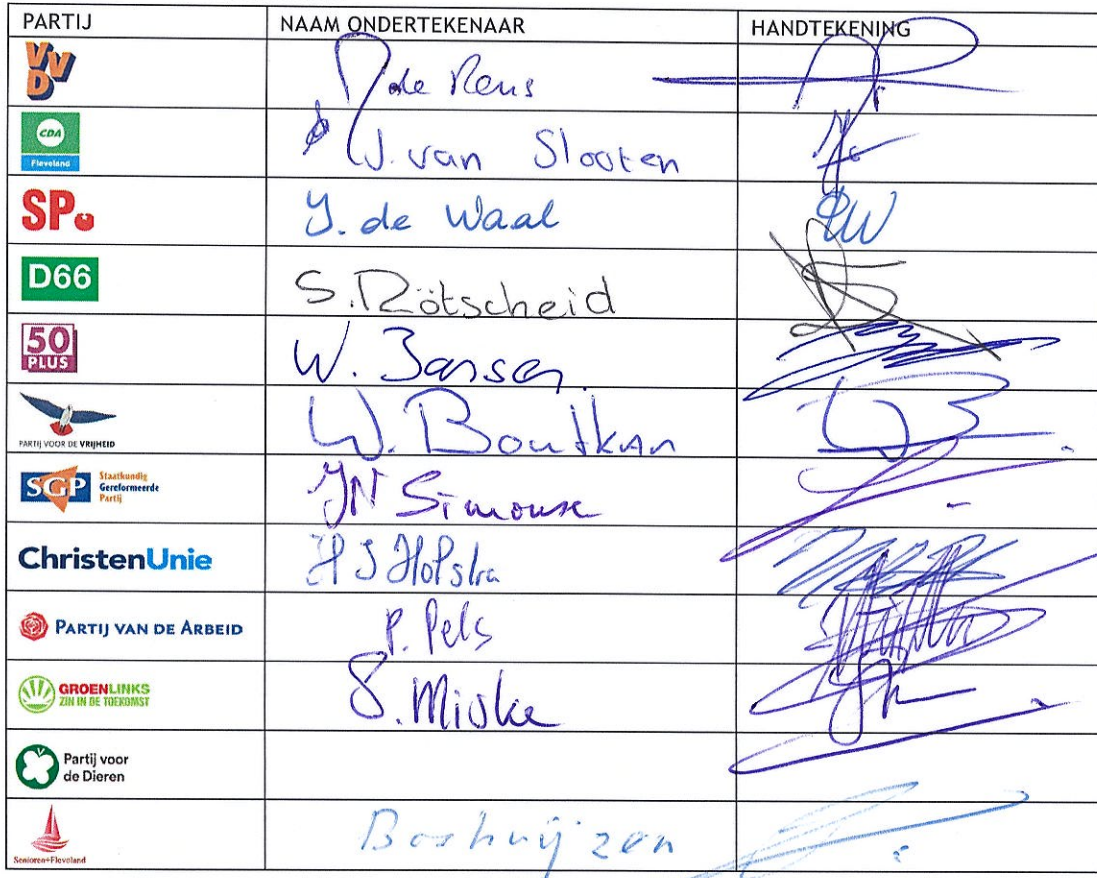 PARTIJ NAAM ONDERTEKENAAR HANDTEKENING
VVD de Reus
CDA
Flevoland J. van Slooten
SP J. de Waal
D66 S. Rötscheid
50
PLUS W. Jansen
PARTIJ VOOR DE VRIJHEID W. Boutkan
SGP Staatkundig
Gereformeerde
Partij JN Simonse
ChristenUnie HJ Hofstra
PARTIJ VAN DE ARBEID P. Pels
GROENLINKS
ZIN IN DE TOEKOMST S. Miske
Partij voor
de Dieren
Senioren+Flevoland Boshuijzen